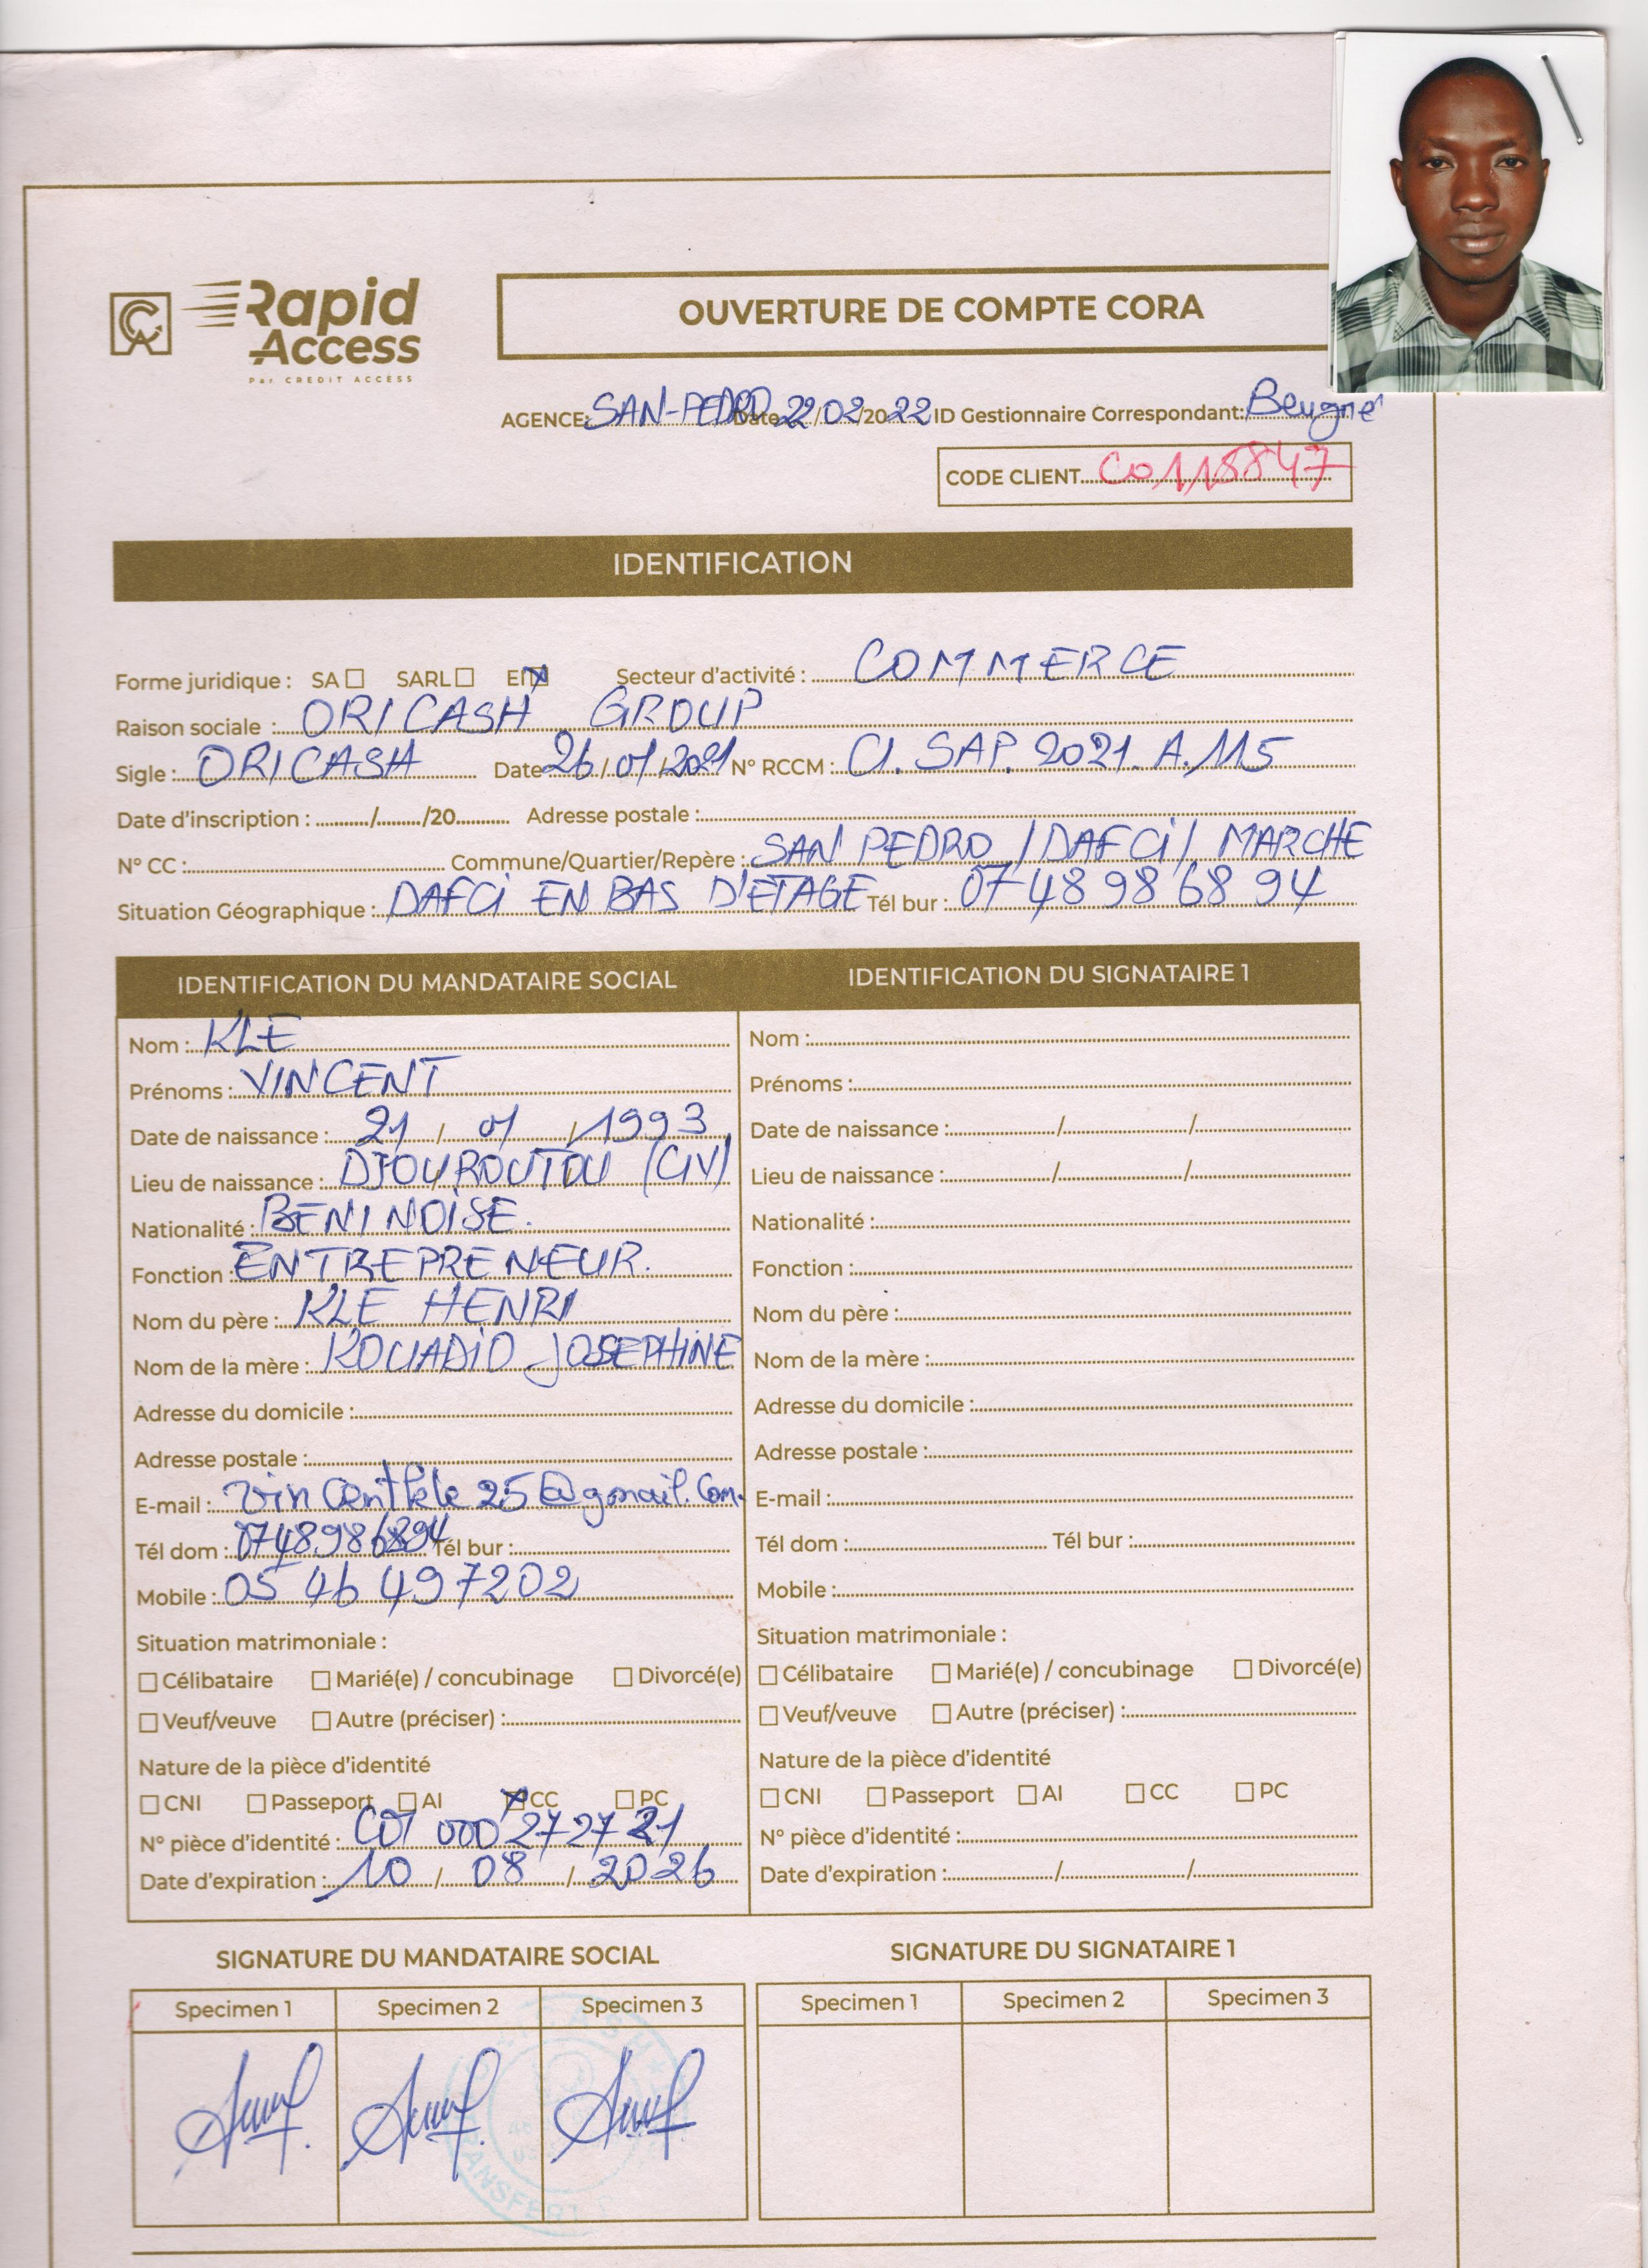 Rapid
Access
Par CREDIT ACCESS
OUVERTURE DE COMPTE CORA
AGENCE: SAN-PEDRO Date 22/02/2022 ID Gestionnaire Correspondant: Beugré
CODE CLIENT CO118847
IDENTIFICATION
Forme juridique : SA SARL EI Secteur d'activité : COMMERCE
Raison sociale : ORICASH GROUP
Sigle : ORICASH Date 26/01/2021 N° RCCM : CI. SAP. 2021. A. 115
Date d'inscription : ........../........./20........... Adresse postale :
N° CC : Commune/Quartier/Repère : SAN PEDRO / DAFCi / MARCHE
Situation Géographique : DAFCi EN BAS D'ETAGE Tél bur : 07 48 98 68 94
IDENTIFICATION DU MANDATAIRE SOCIAL
Nom : KLE
Prénoms : VINCENT
Date de naissance : 21 / 01 / 1993
Lieu de naissance : DJOUROUTOU (CIV)
Nationalité : BENINOISE.
Fonction : ENTREPRENEUR.
Nom du père : KLE HENRI
Nom de la mère : KOUADIO JOSEPHINE
Adresse du domicile :
Adresse postale :
E-mail : vincentkle25@gmail.com.
Tél dom : 0748986894 Tél bur :
Mobile : 05 46 497202
Situation matrimoniale :
Célibataire Marié(e) / concubinage Divorcé(e)
Veuf/veuve Autre (préciser) :
Nature de la pièce d'identité
CNI Passeport AI CC PC
N° pièce d'identité :
Date d'expiration : 10 / 08 / 2026
IDENTIFICATION DU SIGNATAIRE 1
Nom :
Prénoms :
Date de naissance : / /
Lieu de naissance : / /
Nationalité :
Fonction :
Nom du père :
Nom de la mère :
Adresse du domicile :
Adresse postale :
E-mail :
Tél dom : Tél bur :
Mobile :
Situation matrimoniale :
Célibataire Marié(e) / concubinage Divorcé(e)
Veuf/veuve Autre (préciser) :
Nature de la pièce d'identité
CNI Passeport AI CC PC
N° pièce d'identité :
Date d'expiration : / /
SIGNATURE DU MANDATAIRE SOCIAL
Specimen 1 Specimen 2 Specimen 3
SIGNATURE DU SIGNATAIRE 1
Specimen 1 Specimen 2 Specimen 3